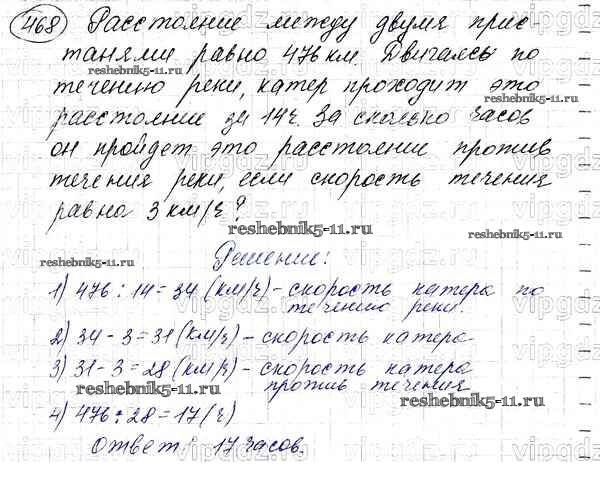 468 Расстояние между двумя прис-
танями равно 476 км. Двигаясь по
течению реки, катер проходит это
reshebnik5-11.ru
расстояние за 14 ч. За сколько часов
он пройдет это расстояние против
течения реки, если скорость течения
равна 3 км/ч?
reshebnik5-11.ru
reshebnik5-11.ru
Решение:
1) 476 : 14 = 34 (км/ч) - скорость катера по
течению реки.
2) 34 - 3 = 31 (км/ч) - скорость катера
3) 31 - 3 = 28 (км/ч) - скорость катера
против течения
reshebnik5-11.ru
reshebnik5-11.ru
4) 476 : 28 = 17 (ч)
Ответ: 17 часов.